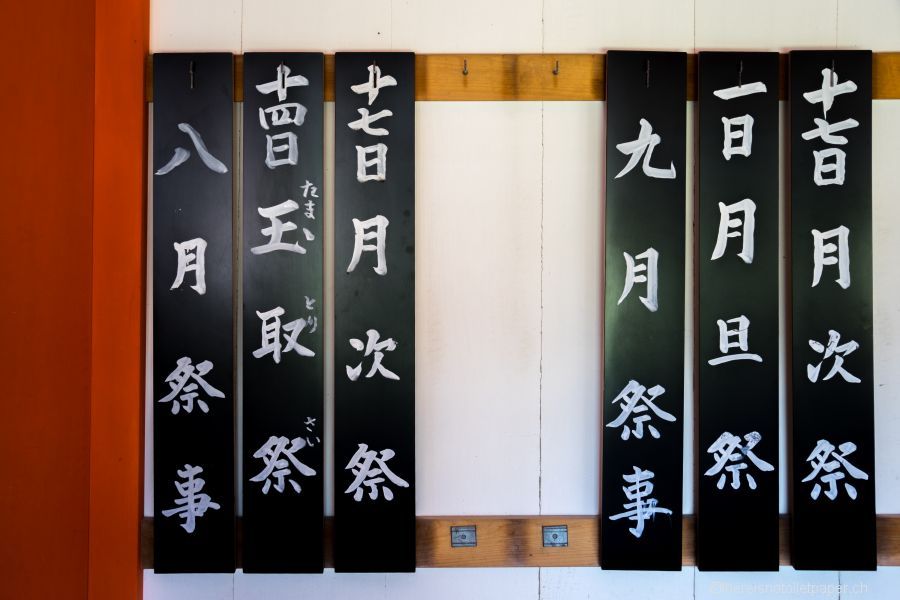 十七日月次祭
一日月旦祭
九月祭事
十七日月次祭
十四日玉取祭
たまとりさい
八月祭事
©hereisnotoiletpaper.ch